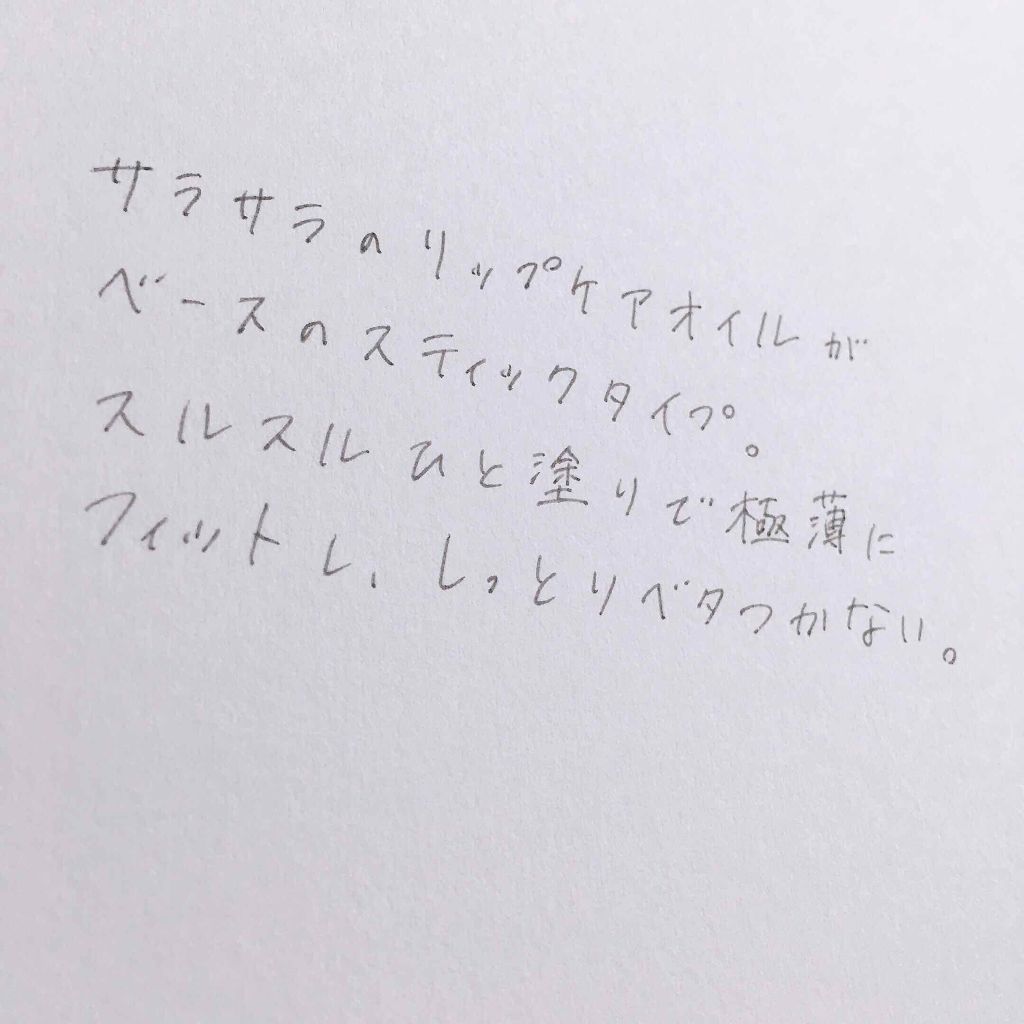 サラサラのリップケアオイルが
ベースのスティックタイプ。
スルスルひと塗りで極薄に
フィットし、しっとりベタつかない。